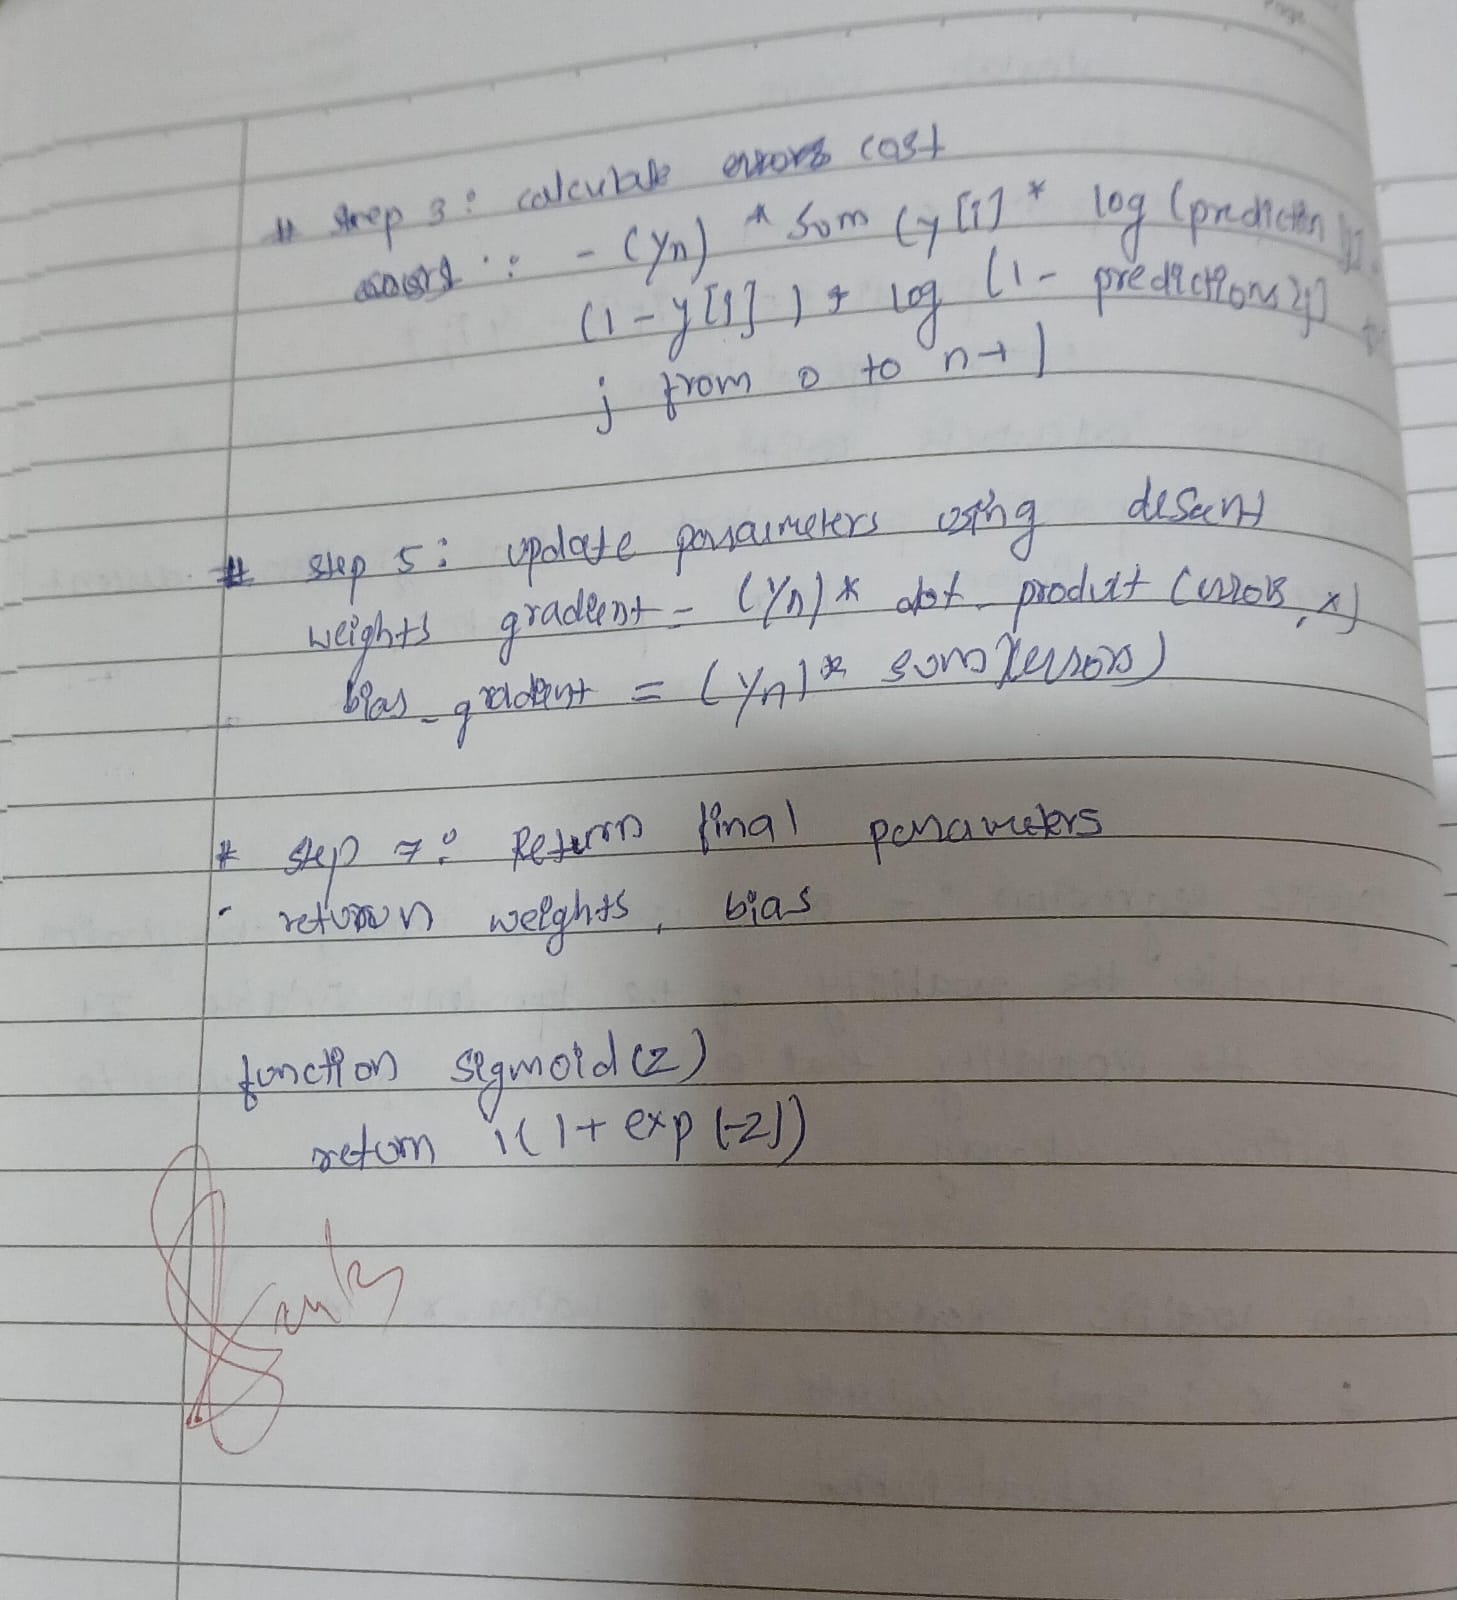 # Step 3: calculate errors cost
: - (1/n) * Sum (y[i] * log (prediction
(1 - y[i]) * log (1 - predictions
j from 0 to n-1
# step 5: update parameters using desent
weights gradient - (1/n) * dot product (errors, x)
bias_gradient = (1/n) * sum (errors)
# step 7: Return final parameters
- return weights, bias
function sigmoid (z)
return 1(1+ exp (-z))